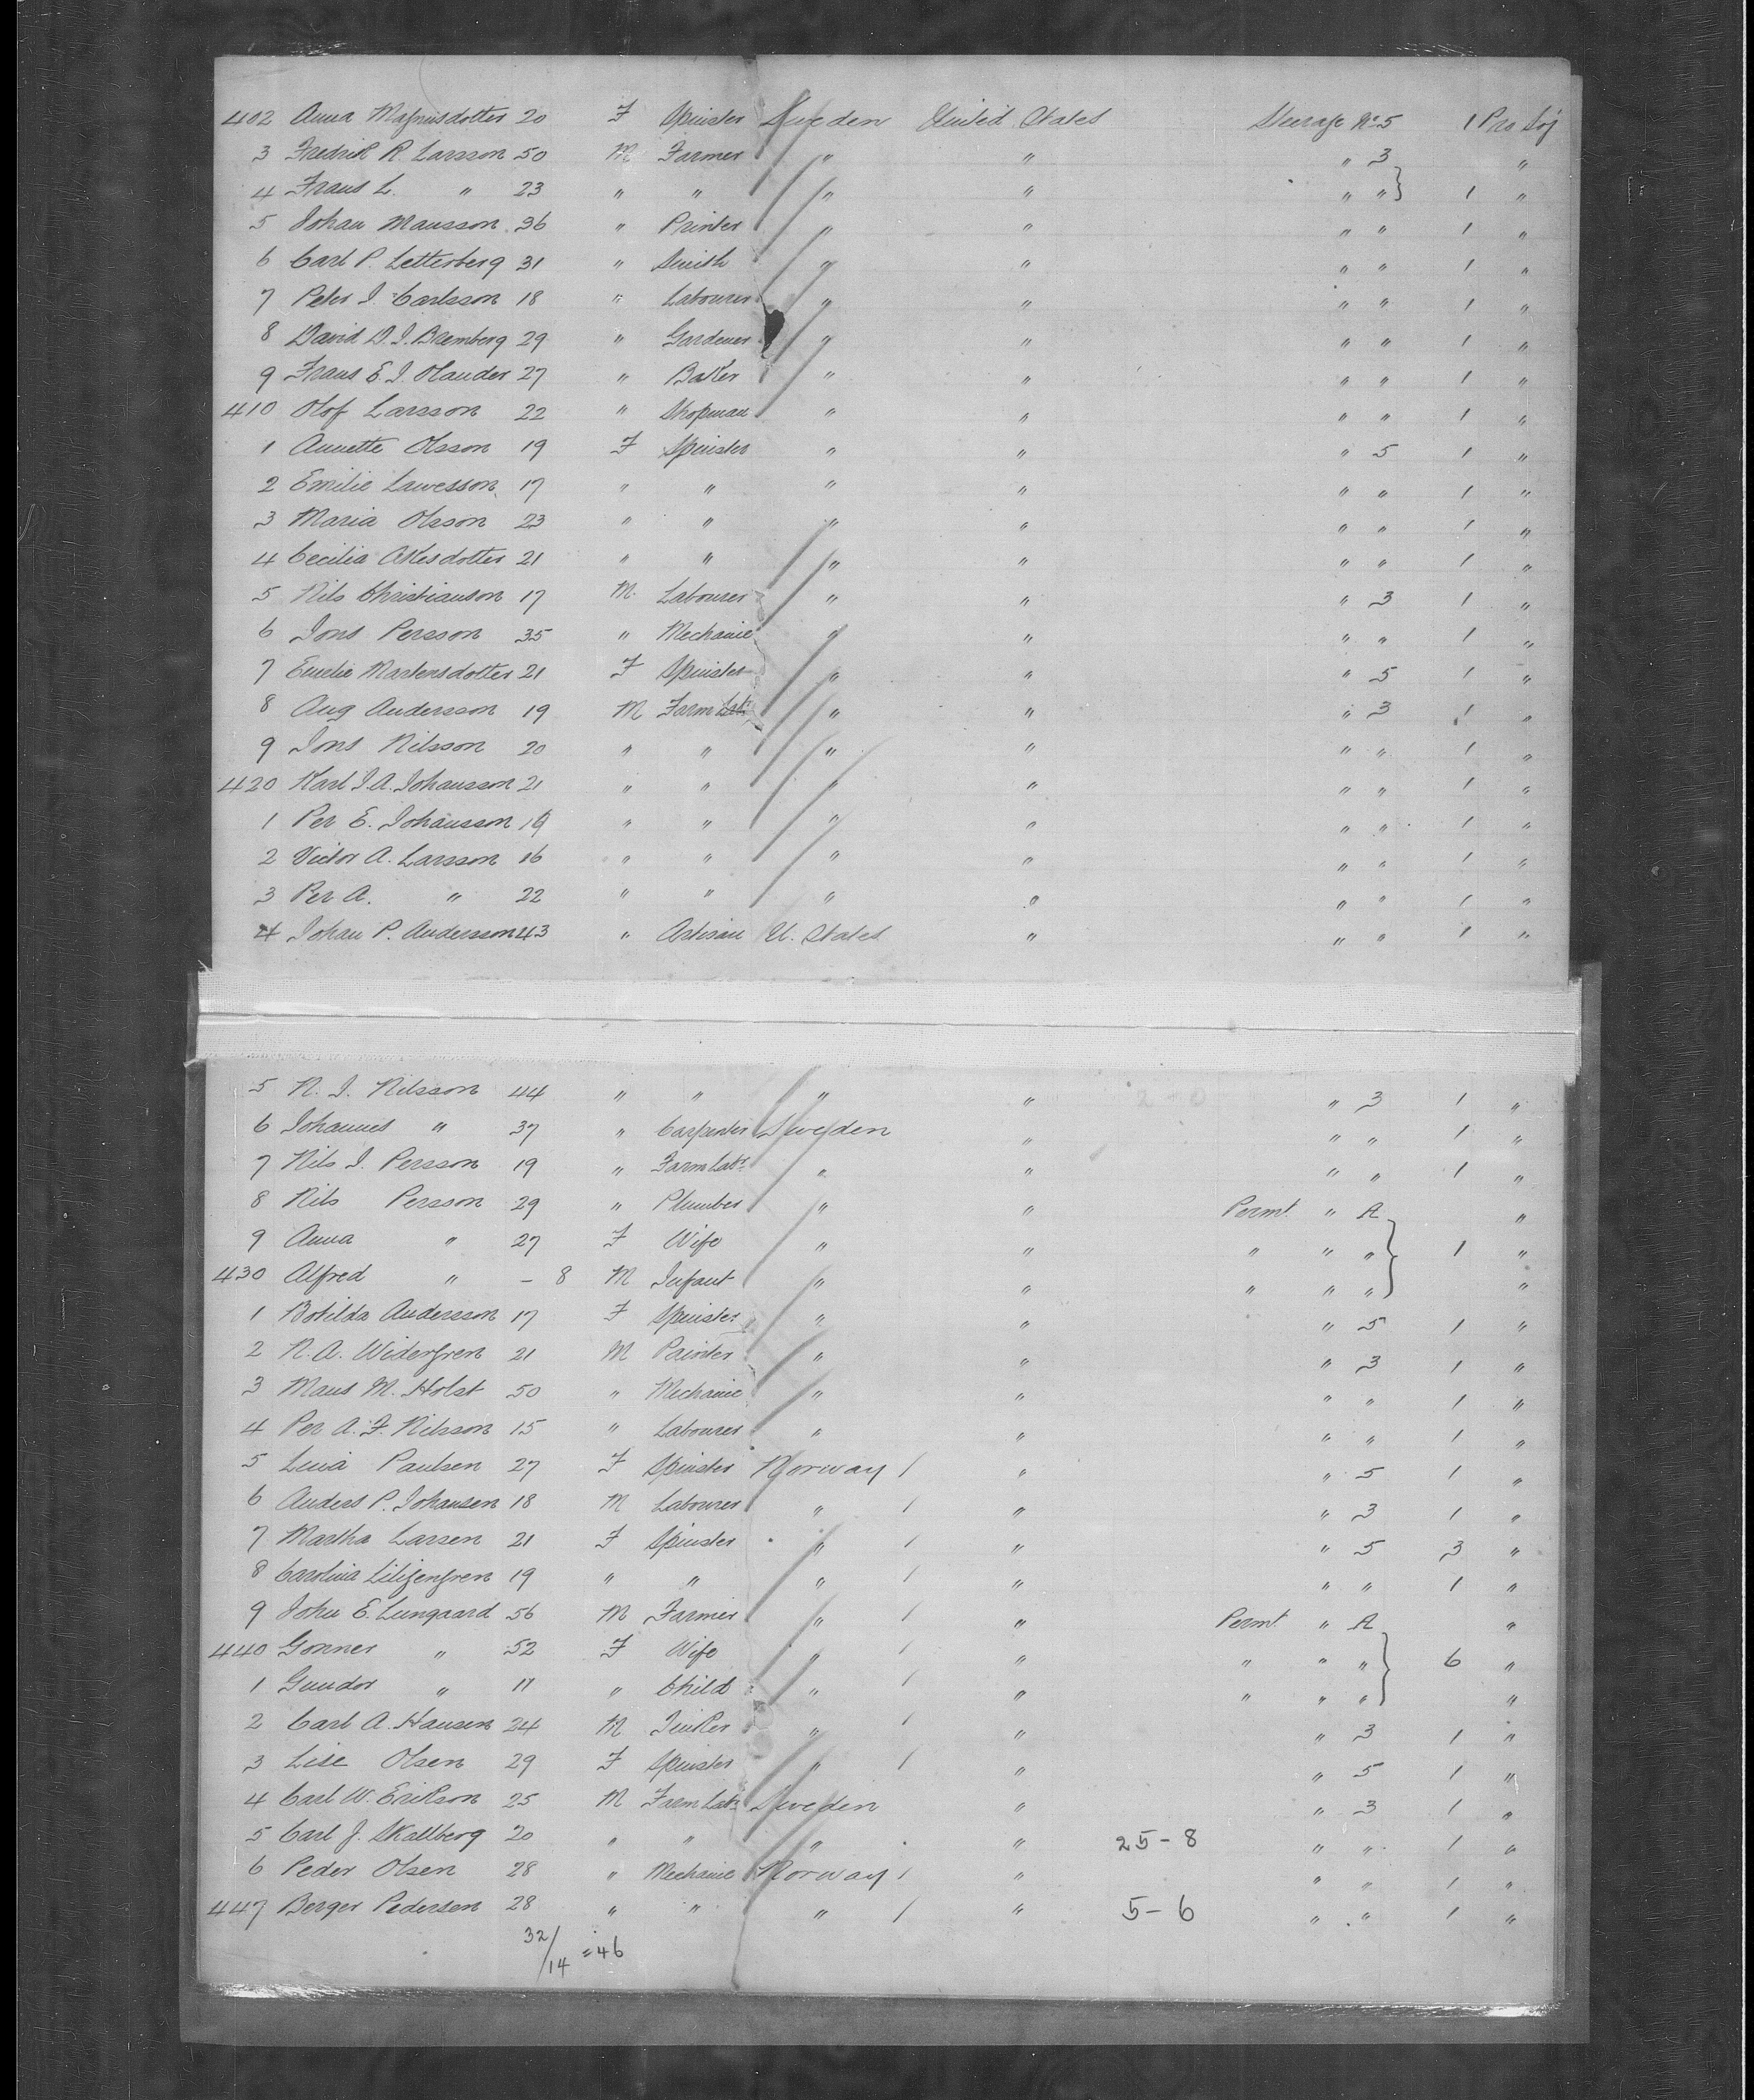 402 Anna Magnusdotter 20 F Spinster Sweden United States Steerage No 5 1 Pro Soj
3 Fredrik R. Larsson 50 M Farmer " " " 3 "
4 Frans L. " 23 " " " " " " } 1 "
5 Johan Mansson 36 " Printer " " " " 1 "
6 Carl P. Letterberg 31 " Smith " " " " 1 "
7 Peter J. Carlsson 18 " Labourer " " " " 1 "
8 David D. J. Bramberg 29 " Gardener " " " " 1 "
9 Frans E. J. Olander 27 " Baker " " " " 1 "
410 Olof Larsson 22 " Shopman " " " " 1 "
1 Annette Olsson 19 F Spinster " " " 5 1 "
2 Emilie Lawesson 17 " " " " " " 1 "
3 Maria Olsson 23 " " " " " " 1 "
4 Cecilia Akesdotter 21 " " " " " " 1 "
5 Nils Christianson 17 M. Labourer " " " 3 1 "
6 Jons Persson 35 " Mechanic " " " " 1 "
7 Emelie Martensdotter 21 F Spinster " " " 5 1 "
8 Aug Andersson 19 M Farm Labr " " " 3 1 "
9 Jons Nilsson 20 " " " " " " 1 "
420 Karl J. A. Johansson 21 " " " " " " 1 "
1 Per E. Johansson 19 " " " " " " 1 "
2 Victor A. Larsson 16 " " " " " " 1 "
3 Per A. " 22 " " " " " " 1 "
4 Johan P. Andersson 43 " Artisan U. States " " " 1 "
5 N. J. Nilsson 44 " " " " " 3 1 "
6 Johannes " 37 " Carpenter Sweden " " " 1 "
7 Nils J. Persson 19 " Farm Labr " " " " 1 "
8 Nils Persson 29 " Plumber " " Permt. " A "
9 Anna " 27 F Wife " " " " " } 1 "
430 Alfred " - 8 M Infant " " " " " "
1 Botilda Andersson 17 F Spinster " " " 5 1 "
2 N. A. Widergren 21 M Painter " " " 3 1 "
3 Mans M. Holst 50 " Mechanic " " " " 1 "
4 Per A. F. Nilsson 15 " Labourer " " " " 1 "
5 Lina Paulsen 27 F Spinster Norway / " " 5 1 "
6 Anders P. Johansen 18 M Labourer " / " " 3 1 "
7 Martha Larsen 21 F Spinster " / " " 5 3 "
8 Carolina Liljengren 19 " " " / " " " 1 "
9 John E. Lungaard 56 M Farmer " / " Permt. " A "
440 Gonner " 52 F Wife " / " " " " } 6 "
1 Gundor " 11 " Child " / " " " " "
2 Carl A. Hansen 24 M Tinker " / " " 3 1 "
3 Lise Olsen 29 F Spinster " / " " 5 1 "
4 Carl W. Erikson 25 M Farm Labr Sweden " " 3 1 "
5 Carl J. Skallberg 20 " " " " 25-8 " " 1 "
6 Peder Olsen 28 " Mechanic Norway / " " " 1 "
447 Berger Pedersen 28 " " " / " 5-6 " " 1 "
32/14 = 46